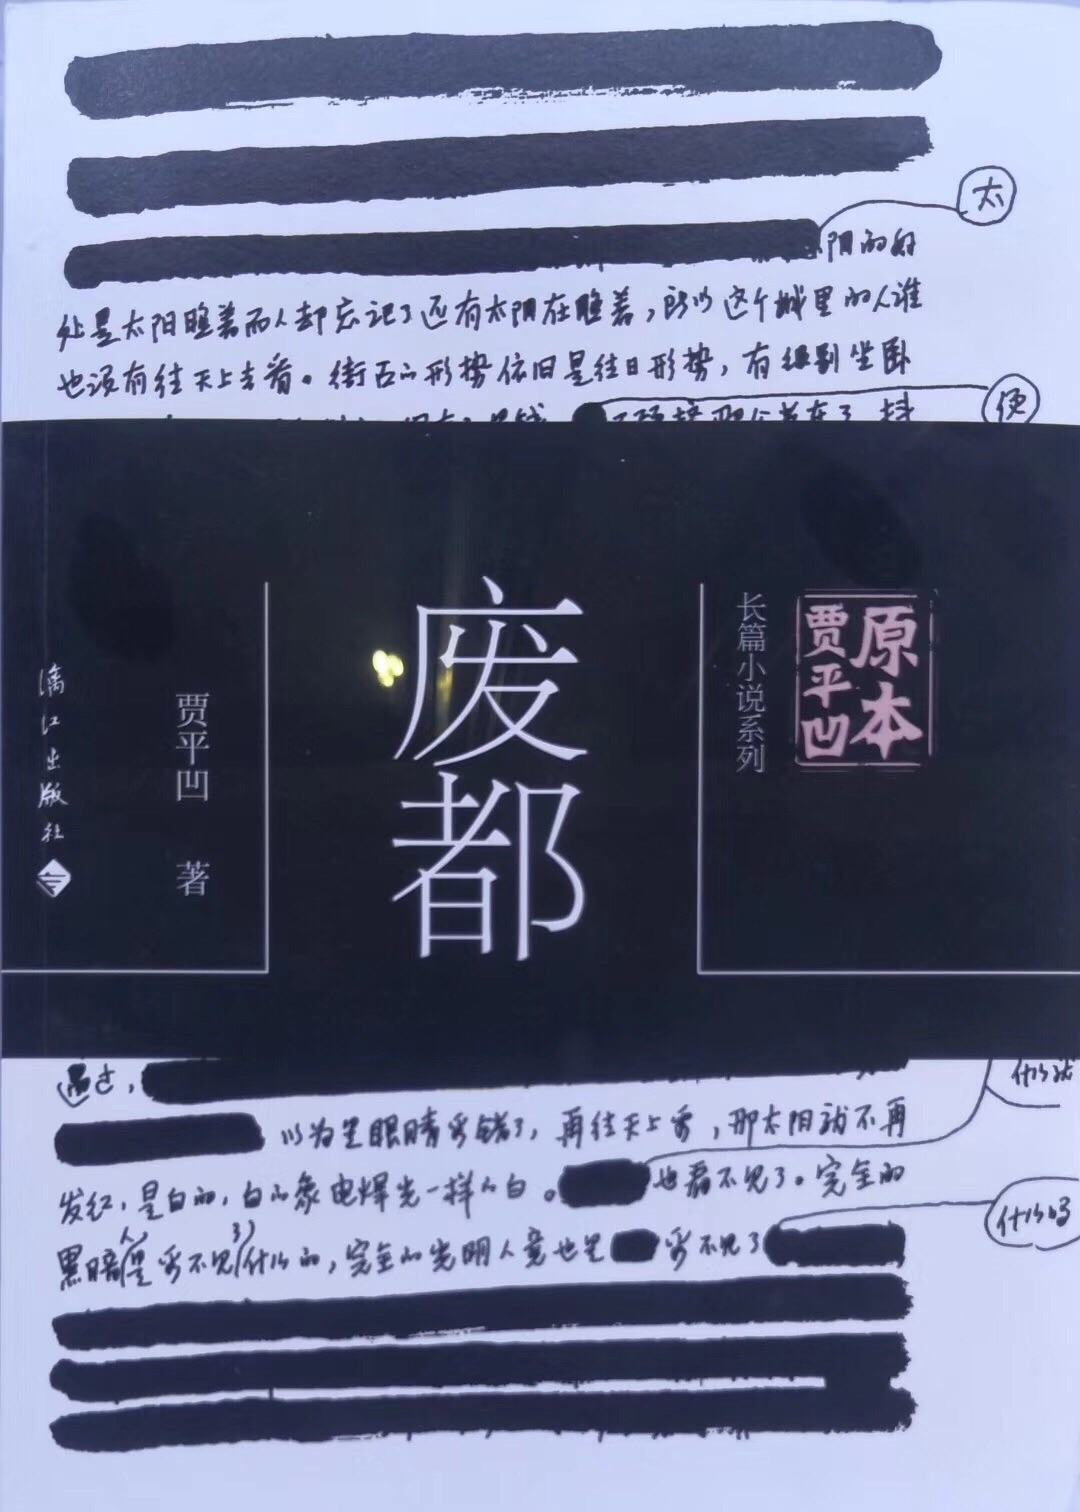 太
阳的好
处是太阳晒着而人却忘记了还有太阳在晒着，所以这个城里的人谁
也没有往天上去看。街面的形势依旧是往日形势，有级别坐卧
便
原本
贾平凹
长篇小说系列
废都
贾平凹 著
漓江出版社
过，
什么就
以为是眼睛看错了，再往天上看，那太阳就不再
发红，是白的，白的象电焊光一样的白。也看不见了。完全的
黑暗人是看不见了什么的，完全的光明人竟也是看不见了
什么吗